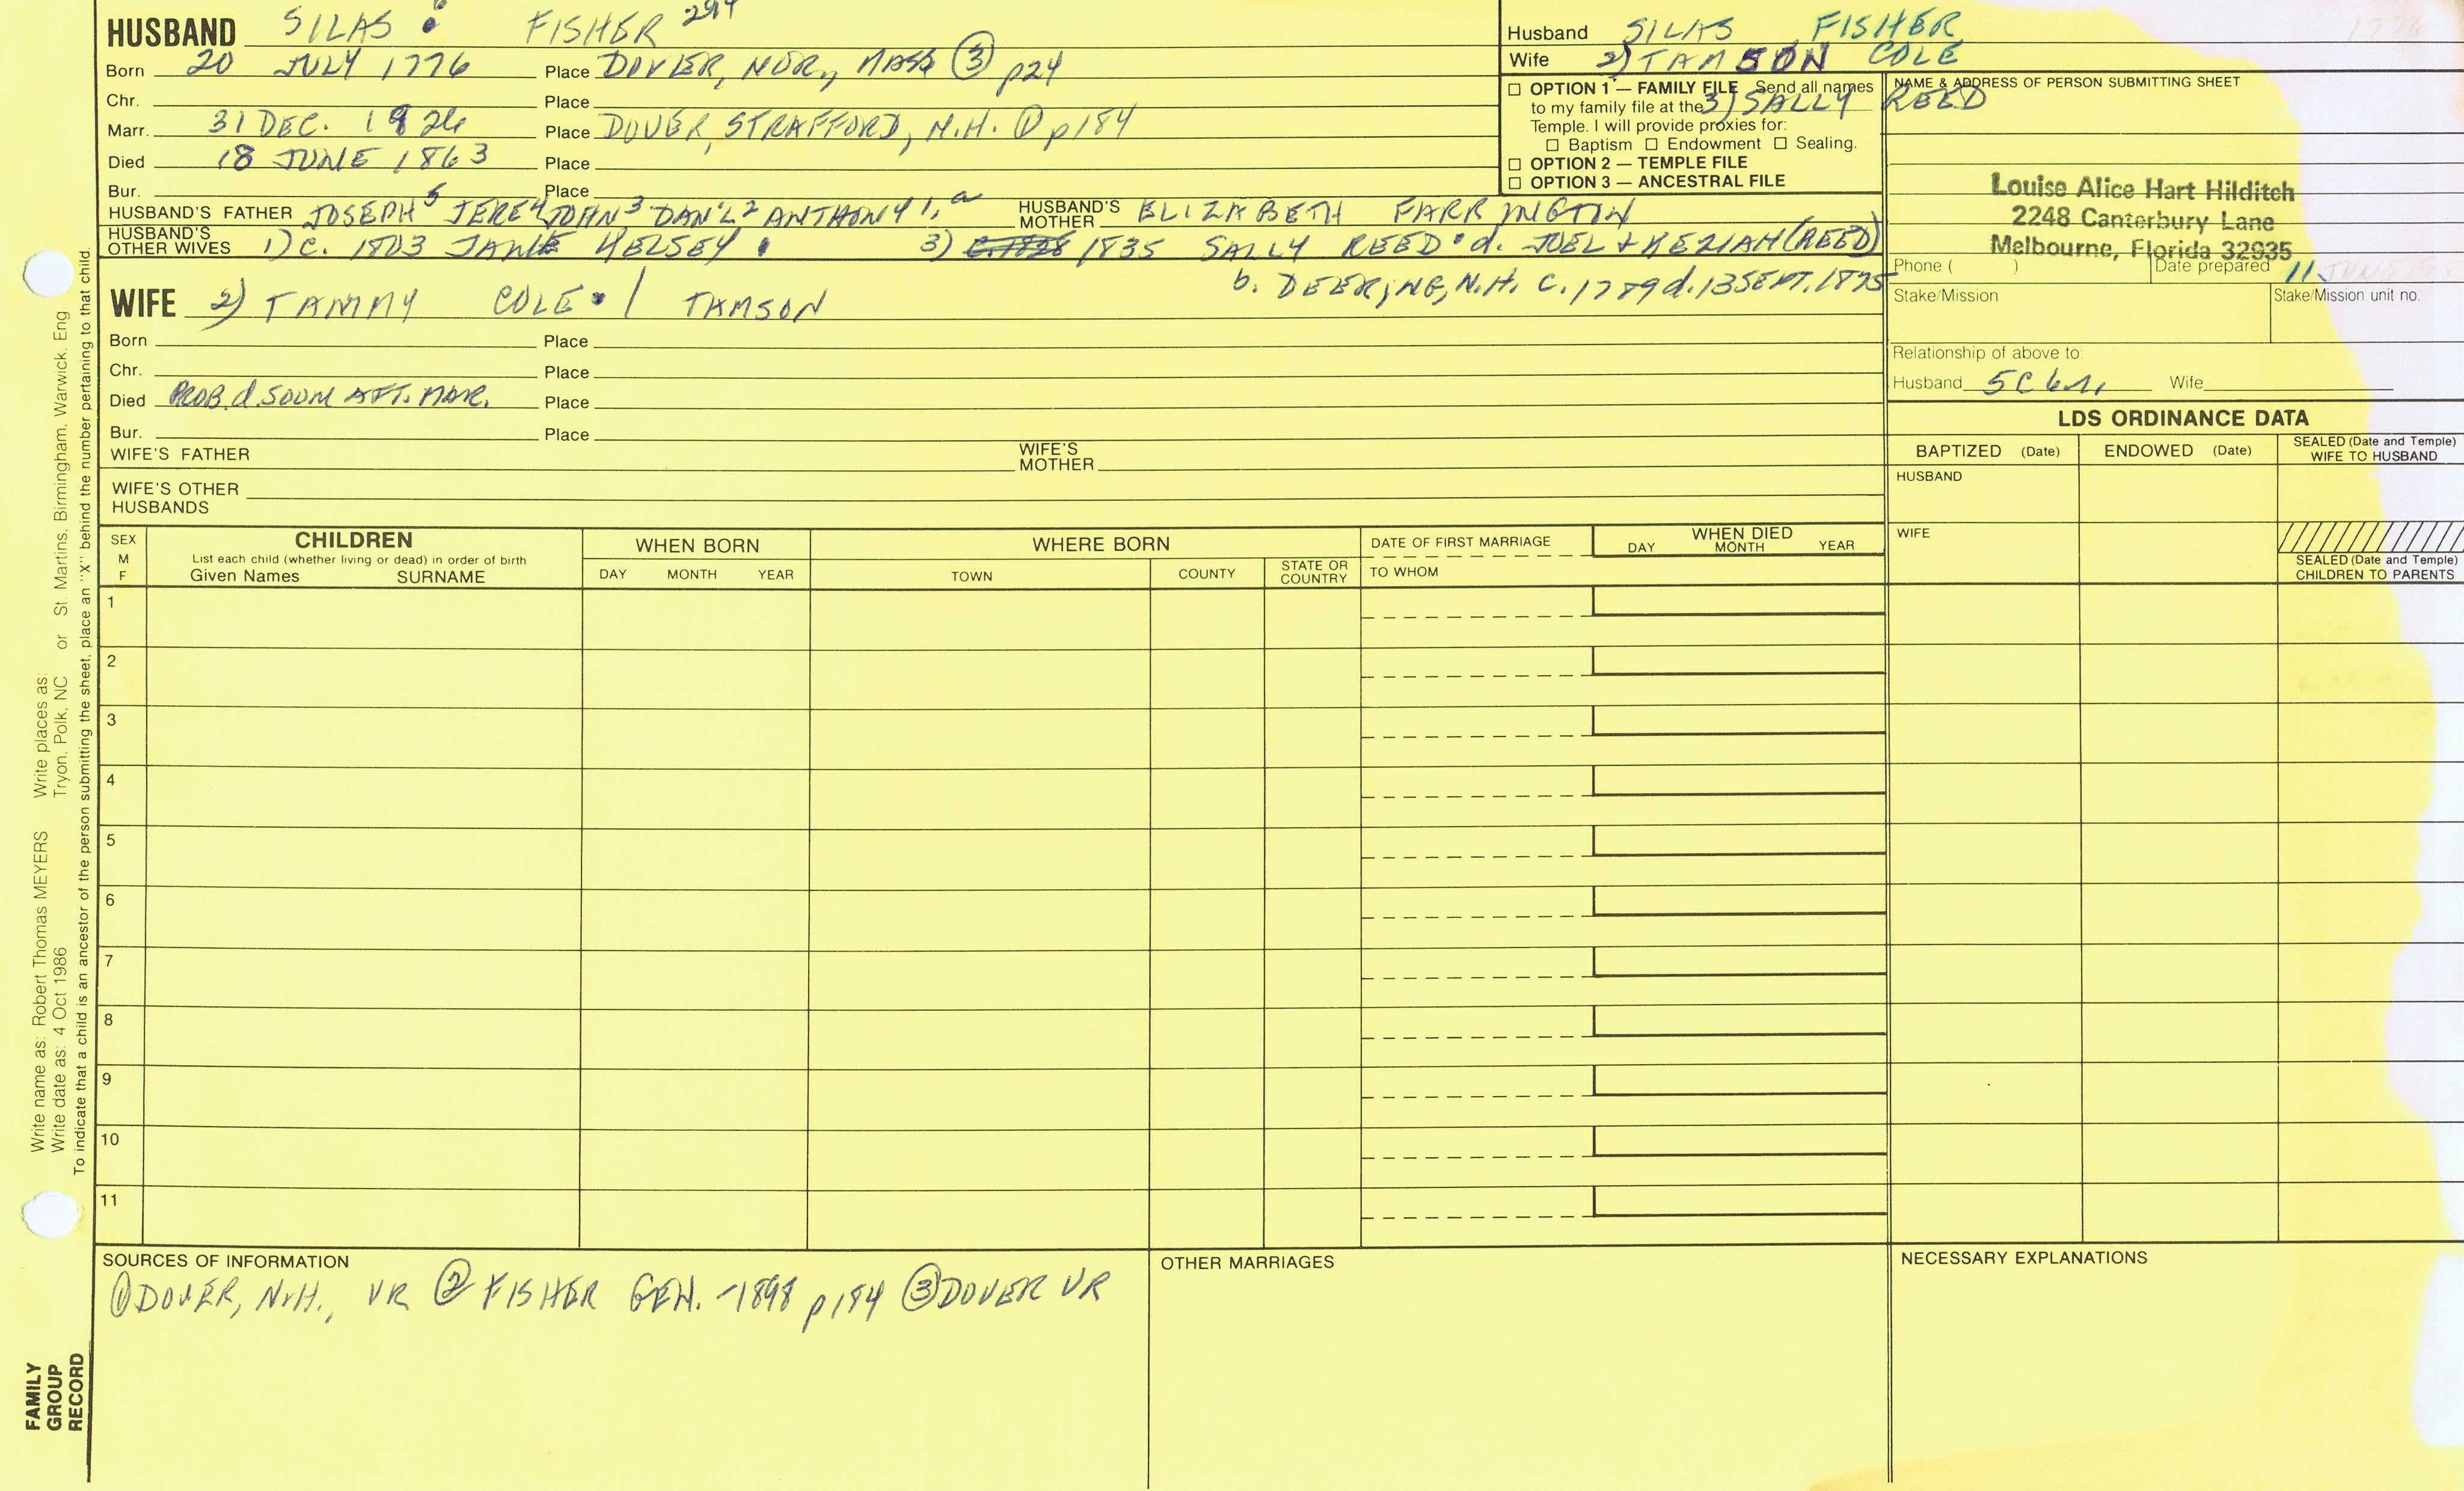 HUSBAND SILAS FISHER
Born 20 JULY 1776 Place DOVER, NOR., MASS ③ p24
Chr. Place
Marr. 31 DEC. 1826 Place DOVER, STRAFFORD, N.H. ① p184
Died 18 JUNE 1863 Place
Bur. Place
HUSBAND'S FATHER JOSEPH5 JERE4 JOHN3 DAN'L2 ANTHONY1,a HUSBAND'S MOTHER ELIZABETH FARRINGTON
HUSBAND'S OTHER WIVES 1) C. 1803 JANE KELSEY 3) 1835 SALLY REED d. JOEL + KEZIAH (REED)
b. DEERING, N.H. C. 1789 d. 13 SEPT. 1875
WIFE 2) TAMMY COLE / TAMSON
Born Place
Chr. Place
Died PROB. d. SOON AFT. MAR. Place
Bur. Place
WIFE'S FATHER WIFE'S MOTHER
WIFE'S OTHER HUSBANDS
Husband SILAS FISHER
Wife 2) TAMSON COLE
3) SALLY REED
☐ OPTION 1 — FAMILY FILE Send all names
to my family file at the
Temple. I will provide proxies for:
☐ Baptism ☐ Endowment ☐ Sealing.
☐ OPTION 2 — TEMPLE FILE
☐ OPTION 3 — ANCESTRAL FILE
NAME & ADDRESS OF PERSON SUBMITTING SHEET
Louise Alice Hart Hilditch
2248 Canterbury Lane
Melbourne, Florida 32935
Phone ( ) Date prepared 11 JUNE
Stake/Mission Stake/Mission unit no.
Relationship of above to:
Husband 5C Wife
LDS ORDINANCE DATA
BAPTIZED (Date) ENDOWED (Date) SEALED (Date and Temple) WIFE TO HUSBAND
HUSBAND
WIFE
SEALED (Date and Temple) CHILDREN TO PARENTS
SEX M F
CHILDREN
List each child (whether living or dead) in order of birth
Given Names SURNAME
WHEN BORN
DAY MONTH YEAR
WHERE BORN
TOWN COUNTY STATE OR COUNTRY
DATE OF FIRST MARRIAGE
TO WHOM
WHEN DIED
DAY MONTH YEAR
1
2
3
4
5
6
7
8
9
10
11
SOURCES OF INFORMATION
① DOVER, N.H., VR ② FISHER GEN. -1898 p184 ③ DOVER VR
OTHER MARRIAGES
NECESSARY EXPLANATIONS
Write name as: Robert Thomas MEYERS Write places as:
Write date as: 4 Oct 1986 Tryon, Polk, NC or St. Martins, Birmingham, Warwick, Eng
To indicate that a child is an ancestor of the person submitting the sheet, place an "X" behind the number pertaining to that child.
FAMILY
GROUP
RECORD
1776